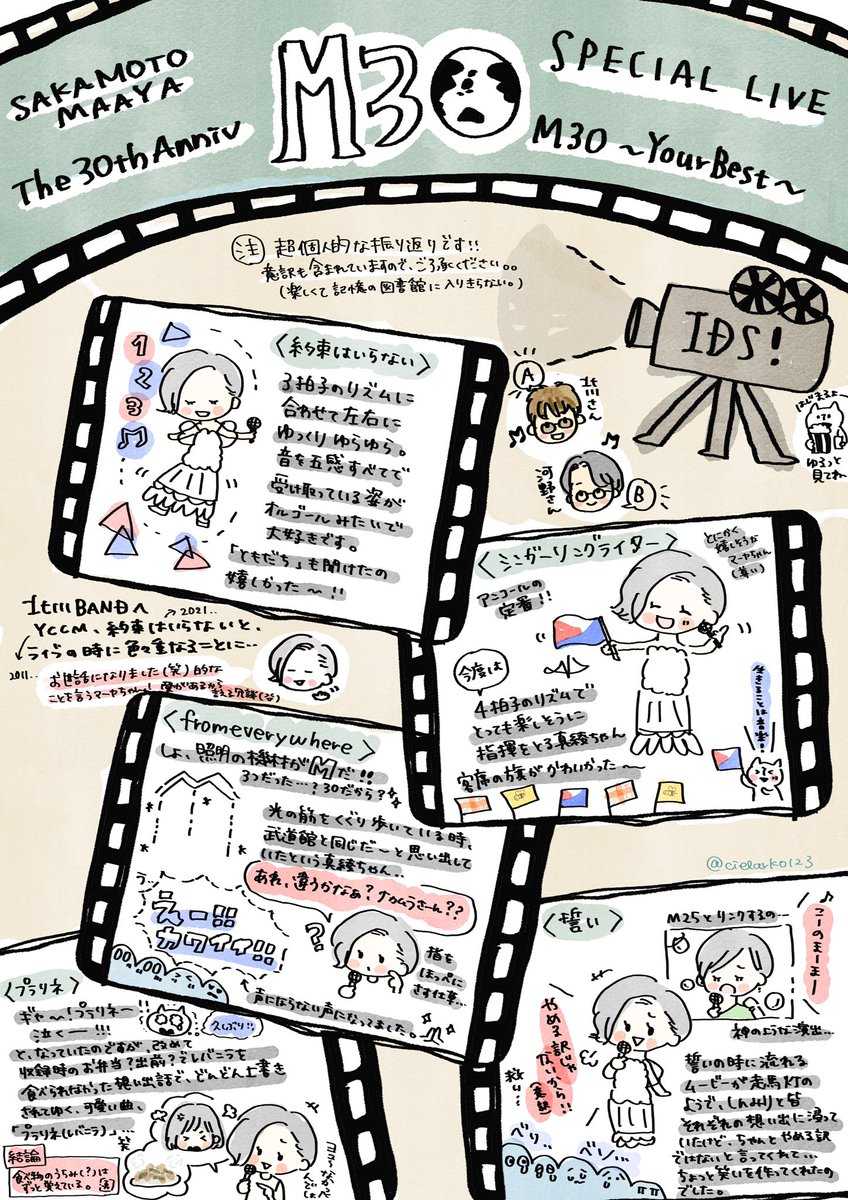 SAKAMOTO
MAAYA
The 30th Anniv
M30
SPECIAL LIVE
M30 ～YourBest～
注 超個人的な振り返りです!!
意訳も含まれていますので、ご了承ください。。
(楽しくて記憶の図書館に入りきらない。)
IDS!
はじまるよー
ゆるっと
見てね
A
北川さん
河野さん
B
1
2
3
M
〈約束はいらない〉
3拍子のリズムに
合わせて左右に
ゆっくりゆらゆら。
音を五感すべてで
受け取っている姿が
オルゴールみたいで
大好きです。
「ともだち」も聞けたの
嬉しかった〜!!
〈シンガーソングライター〉
アンコールの
定番!!
とにかく
嬉しそうな
マーヤちゃん
(尊い)
今度は
4拍子のリズムで
とっても楽しそうに
指揮をとる真綾ちゃん
客席の旗がかわいかった〜
生きることは音楽!
北川BANDへ
→2021…
YCCM、約束はいらないと、
ライブの時に色々重なることに…
2011…
お世話になりました(笑)的な
ことを言うマーヤちゃん!
〈fromeverywhere〉
しょ、照明の機材がMだ!!
3つだった…?30だから?
光の筋をくぐり歩いている時、
武道館と同じだーと思い出して
いたという真綾ちゃん…
あれ、違うかなぁ?ナカムラさーん??
えー!!
カワイイ!!
?
指を
ほっぺに
さす仕草…
声にならない声になってました。
@cielarko123
〈プラリネ〉
ギャー!プラリネー
泣くー!!!
久しぶり!!
と、なっていたのですが、改めて
収録時のお弁当?出前?でレバニラを
食べられなかった想い出話で、どんどん上書き
されてゆく、可愛い曲、
「プラリネ(レバニラ)」…
笑
結論
食べ物のうらみ(?)は
ずっと覚えている。
〈誓い〉
M25とリンクするの…
このままー
神のような演出…
やめる訳じゃ
ないから!!
(意訳)
べり、
ベソ…
誓いの時に流れる
ムービーが走馬灯の
ようで、しんみりと皆
それぞれの想い出に浸って
いたけど、ちゃんとやめる訳
ではないと言ってくれて…
ちょっと笑いを作ってくれたの
でした。